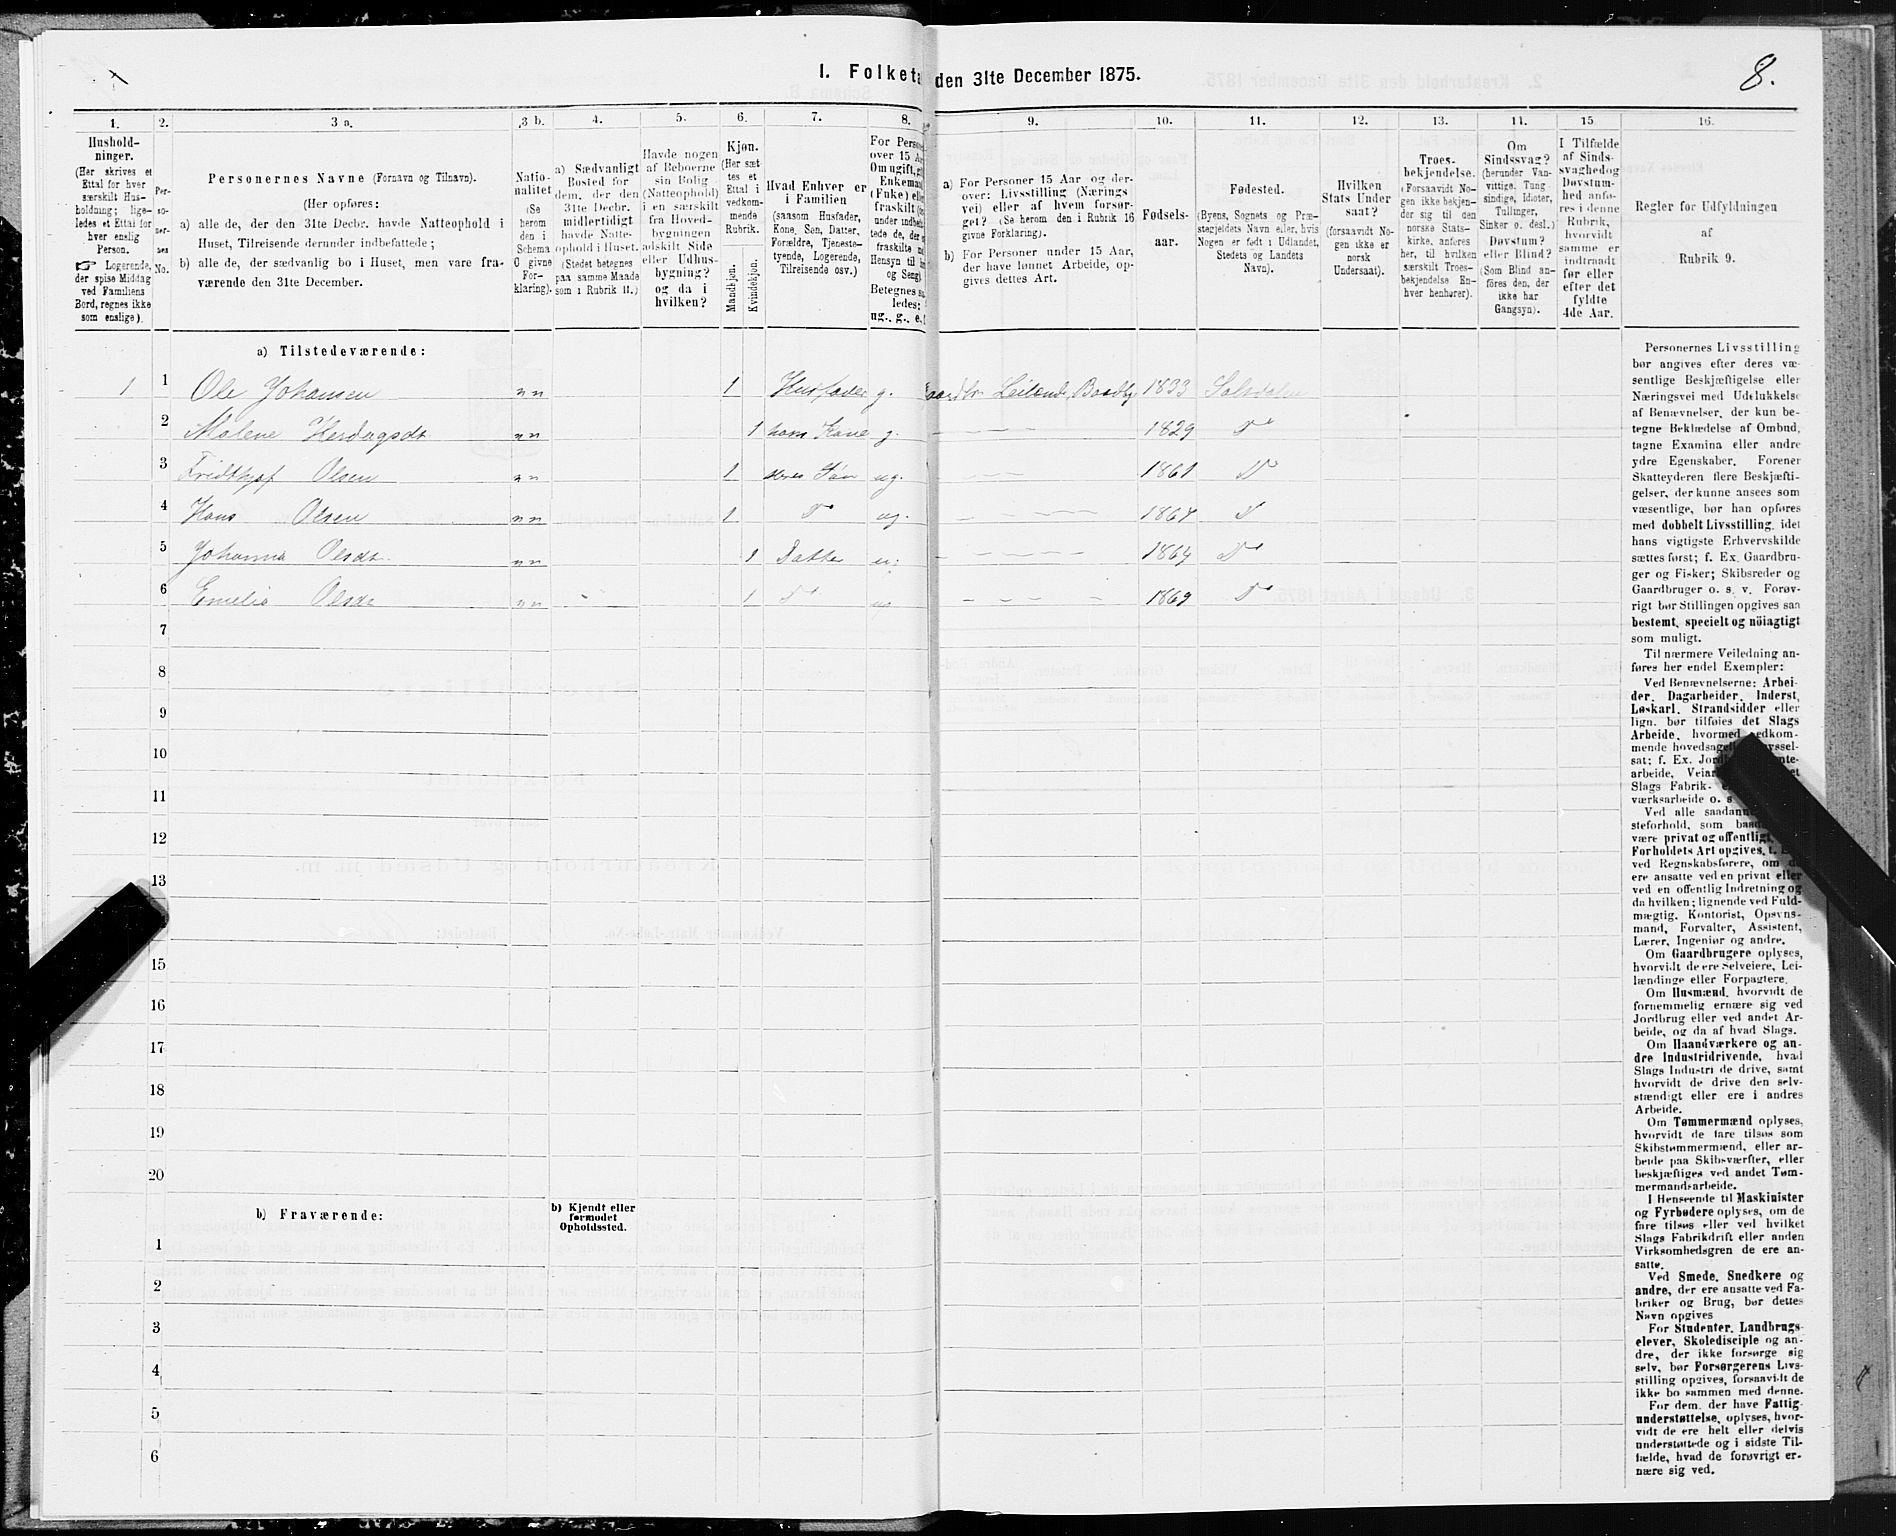 I. Folketal den 31te December 1875.
8.
1.
Hushold-
ninger.
(Her skrives et
Ettal for hver
særskilt Hus-
holdning; lige-
ledes et Ettal for
hver enslig
Person.
☞ Logerende,
der spise Middag
ved Familiens
Bord, regnes ikke
som enslige).
2.
Per-
so-
ner-
nes
No.
3 a.
Personernes Navne (Fornavn og Tilnavn).
(Her opføres:
a) alle de, der den 31te Decbr. havde Natteophold i
Huset, Tilreisende derunder indbefattede;
b) alle de, der sædvanlig bo i Huset, men vare fra-
værende den 31te December.
3 b.
Natio-
nalitet
(Se
herom
den i
Schema
C givne
For-
klaring).
4.
a) Sædvanligt
Bosted for
dem, der den
31te Decbr.
midlertidigt
havde Natte-
ophold i Huset.
(Stedet betegnes
paa samme Maade
som i Rubrik 11.)
5.
Havde nogen
af Beboerne
sin Bolig
(Natteophold)
i en særskilt
fra Hoved-
bygningen
adskilt Side
eller Udhus-
bygning?
og da i
hvilken?
6.
Kjøn.
(Her sæt-
tes et
Ettal i
vedkom-
mende
Rubrik.
Mandkjøn.
Kvindekjøn.
7.
Hvad Enhver er
i Familien
(saasom Husfader,
Kone, Søn, Datter,
Forældre, Tjeneste-
tyende, Logerende,
Tilreisende osv.)
8.
For Person
over 15 Aa
Om ugift, g
Enkeman
(Enke) elle
fraskilt
under indbe
tede de, der
fraskilte
Hensyn til
og Seng)
Betegnes s
ledes:
ug., g., e.
9.
a) For Personer 15 Aar og der-
over: Livsstilling (Nærings
vei) eller af hvem forsør-
get? (Se herom den i Rubrik 16
givne Forklaring).
b) For Personer under 15 Aar,
der have lønnet Arbeide, op-
gives dettes Art.
10.
Fødsels-
aar.
11.
Fødested.
(Byens, Sognets og Præ-
stegjeldets Navn eller, hvis
Nogen er født i Udlandet,
Stedets og Landets
Navn).
12.
Hvilken
Stats Under
saat?
(forsaavidt No-
gen ikke er
norsk
Undersaat).
13.
Troes-
bekjendelse.
(Forsaavidt No-
gen ikke bekjen-
der sig til den
norske Stats-
kirke, anføres
her, til hvilken
særskilt Troes-
bekjendelse En-
hver henhører).
14.
Om
Sindssvag?
(herunder Van-
vittige, Tung
sindige, Idioter,
Tullinger,
Sinker o. desl.)
Døvstum?
eller Blind?
(Som Blind an-
føres den, der
ikke har
Gangsyn).
15
I Tilfælde
af Sinds-
svaghed og
Døvstum-
hed anfø-
res i denne
Rubrik,
hvorvidt
samme er
indtraadt
før eller
efter det
fyldte
4de Aar.
16.
Regler for Udfyldningen
af
Rubrik 9.
a) Tilstedeværende:
1 1 Ole Johansen nn 1 Husfader g. Leilænd, 1833
2 Malene nn 1 hans Kone g. 1829 Do
3 Olsen nn 1 deres Søn ug. 1861 Do
4 Hans Olsen nn 1 Do ug. Do
5 Johanna Olsdt. nn 1 Datter 1864 Do
6 Emelie Olsdt nn 1 Do 1869 Do
7
8
9
10
11
12
13
15
16
17
18
19
20
b) Fraværende:
b) Kjendt eller
formodet
Opholdssted.
1
2
3
4
5
6
Personernes Livsstilling
bør angives efter deres væ-
sentlige Beskjæftigelse eller
Næringsvei med Udelukkelse
af Benævnelser, der kun be-
tegne Beklædelse af Ombud,
tagne Examina eller andre
ydre Egenskaber. Forener
Skatteyderen flere Beskjæfti-
gelser, der kunne ansees som
væsentlige, bør han opføres
med dobbelt Livsstilling, idet
hans vigtigste Erhvervskilde
sættes først; f. Ex. Gaardbru-
ger og Fisker; Skibsreder og
Gaardbruger o. s. v. Forøv-
rigt bør Stillingen opgives saa
bestemt, specielt og nöiagtigt
som muligt.
Til nærmere Veiledning an-
føres her endel Exempler:
Ved Benævnelserne: Arbei-
der, Dagarbeider, Inderst,
Løskarl, Strandsidder eller
lign. bør tilføies det Slags
Arbeide, hvormed vedkom-
mende hovedsagel ssel-
sat; f. Ex. Jord nte-
arbeide, Veiar et
Slags Fabrik-
værksarbeide o. s
Ved alle saadann
steforhold, som baa
være privat og offentligt,
Forholdets Art opgives, t.
ved Regnskabsførere, om de
ere ansatte ved en privat eller
ved en offentlig Indretning og
da hvilken; lignende ved Fuld-
mægtig, Kontorist, Opsyns-
mand, Forvalter, Assistent,
Lærer, Ingeniør og andre.
Om Gaardbrugere oplyses,
hvorvidt de ere Selveiere, Lei-
lændinge eller Forpagtere.
Om Husmænd, hvorvidt de
fornemmelig ernære sig ved
Jordbrug eller ved andet Ar-
beide, og da af hvad Slags.
Om Haandværkere og an-
dre Industridrivende, hvad
Slags Industri de drive, samt
hvorvidt de drive den selv-
stændigt eller ere i andres
Arbeide.
Om Tømmermænd oplyses,
hvorvidt de fare tilsøs som
Skibstømmermænd, eller ar-
beide paa Skibsværfter, eller
beskjæftiges ved andet Tøm-
mermandsarbeide.
I Henseende til Maskinister
og Fyrbødere oplyses, om de
fare tilsøs eller ved hvilket
Slags Fabrikdrift eller anden
Virksomhedsgren de ere an-
satte.
Ved Smede, Snedkere og
andre, der ere ansatte ved Fa-
briker og Brug, bør dettes
Navn opgives
For Studenter, Landbrugs-
elever, Skoledisciple og an-
dre, der ikke forsørge sig
selv, bør Forsørgerens Livs-
stilling opgives, forsaavidt de
ikke bo sammen med denne.
For dem, der have Fattig-
understøttelse, oplyses, hvor-
vidt de ere helt eller delvis
understøttede og i sidste Til-
fælde, hvad de forøvrigt er-
nære sig ved.